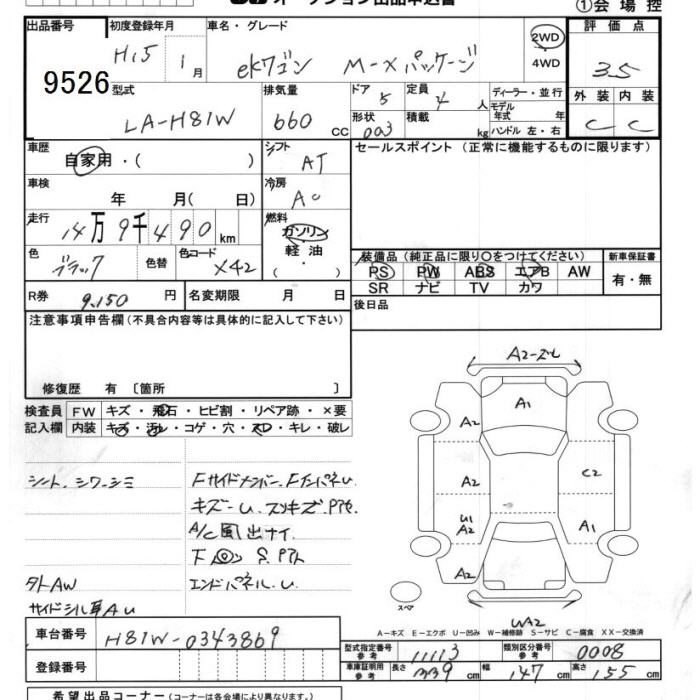 ①会場控
出品番号 初度登録年月 車名・グレード 評価点
H15 1月 ekワゴン M-Xパッケージ 2WD 4WD 3.5
9526
型式 排気量 ドア 5 定員 4人 ディーラー・並行 外装 内装
LA-H81W 660cc 形状 003 積載 kg モデル年式 年 ハンドル 左・右 C C
車歴 自家用・( ) シフト AT セールスポイント (正常に機能するものに限ります)
車検 年 月( 日) 冷房 AC
走行 14万9千490km 燃料 ガソリン 軽油 ( )
色 ブラック 色替 色コード X42
装備品 (純正品に限り○をつけてください) 新車保証書
PS PW ABS エアB AW 有・無
SR ナビ TV カワ
R券 9,150円 名変期限 月 日 後日品
注意事項申告欄(不具合内容等は具体的に記入して下さい)
修復歴 有 〔箇所 〕
検査員 FW キズ・飛石・ヒビ割・リペア跡・×要
記入欄 内装 キズ・汚レ・コゲ・穴・スレ・キレ・破レ
シート、シワ-シミ
FサイドメンバーFインパネU
キズ-U
A/C風出ナイ
エンドパネル U
タトAW
サイドシル
A2 A1 A2 A2 C2 U1 A2 A1 A2 WA2
スペア
A-キズ E-エクボ U-凹み W-補修跡 S-サビ C-腐食 XX-交換済
車台番号 H81W-0343869
型式指定番号 参考 11113 類別区分番号 参考 0008
登録番号
車庫証明用 参考 長さ 339cm 幅 147cm 高さ 155cm
希望出品コーナー(コーナーは各会場により異なります。)